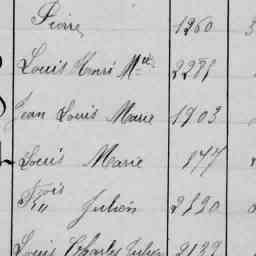 Pierre 1260 3
Louis Henri Mie 2291
Jean Louis Marie 1903
Louis Marie 177
Fçois Julien 2120
Louis Charles Julien 2132